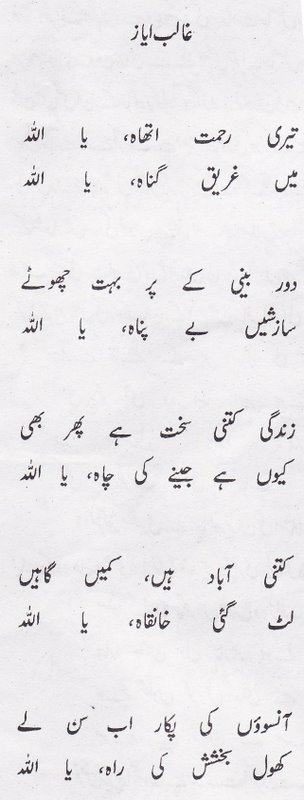 غالب ایاز
تیری رحمت اتھاہ، یا اللہ
میں غریق گناہ، یا اللہ
دور بینی کے پر بہت چھوٹے
سازشیں بے پناہ، یا اللہ
زندگی کتنی سخت ہے پھر بھی
کیوں ہے جینے کی چاہ، یا اللہ
کتنی آباد ہیں، کمیں گاہیں
لٹ گئی خانقاہ، یا اللہ
آنسوؤں کی پکار اب سن لے
کھول بخشش کی راہ، یا اللہ